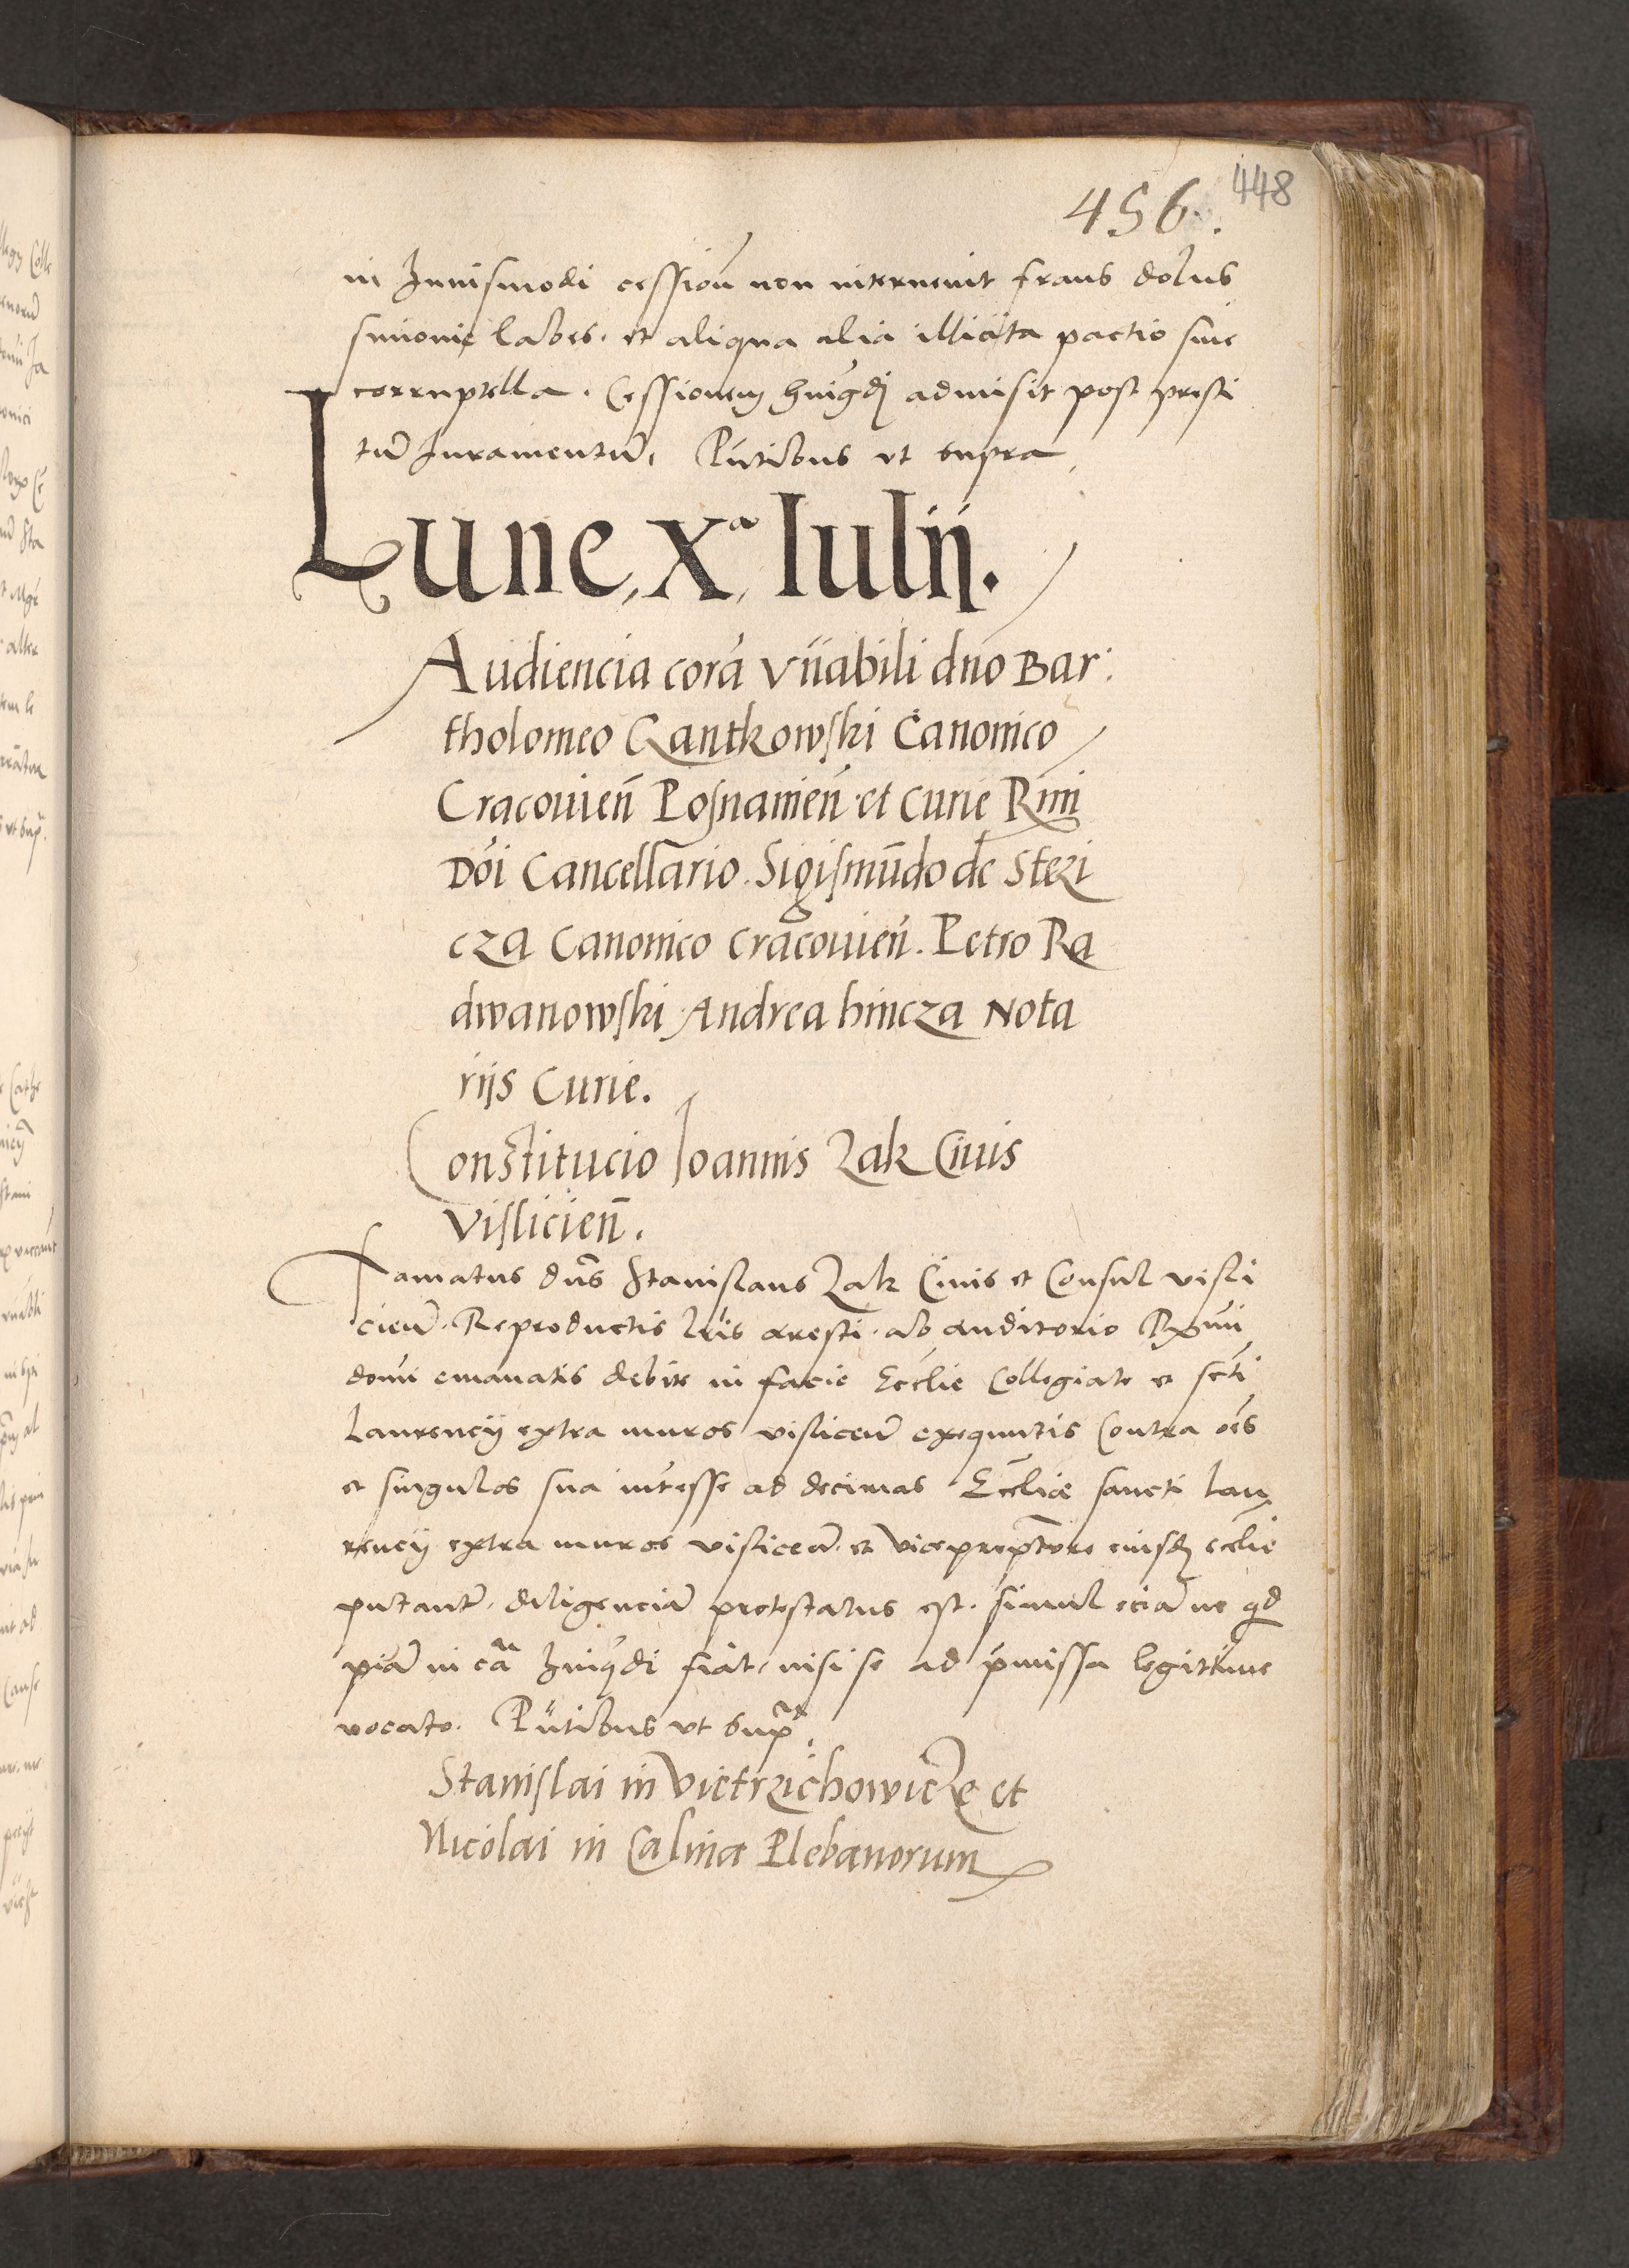 456.
448
in huiusmodi cessioñ non interuenit fraus dolus
simonie labes. et aliqua alia illicita pactio siue
corruptella. Cessionem huiusdj admisit post presti
tū Iuramentū, Pntibus vt supra
Lune, Xa, Iulij.
Audiencia corā Vnabili dno Bar:
tholomeo Gantkowski Canonico
Cracouień Posnanień et Curie Rmi
Dni Cancellario. Sigismūdo de Stezi
cza Canonico Cracouień. Petro Ra
dwanowski Andrea hincza Nota
rijs Curie.
Constitucio Ioannis Zak Ciuis
Vislicień.
Famatus dns Stanislaus Zak Ciuis et Consul visli
cień. Reproductis lris aresti. ab auditorio Rmi
domi emanatis debite in facie Ecclie Collegiate et scti
Laurencij extra muros visliceń exequutis Contra oēs
et singulos sua intesse ad decimas Ecclie sancti Lau
rencij extra muros visliceń. et viceprepture eiusdj ecclie
putantū. diligenciā protestatus est. simul eciā ne qd
piā in cā huiusdi fiat, nisi se ad pmissa legittime
vocato. Pntibus vt supra
Stanislai in Vietrzichowicze et
Nicolai in Calina Plebanorum